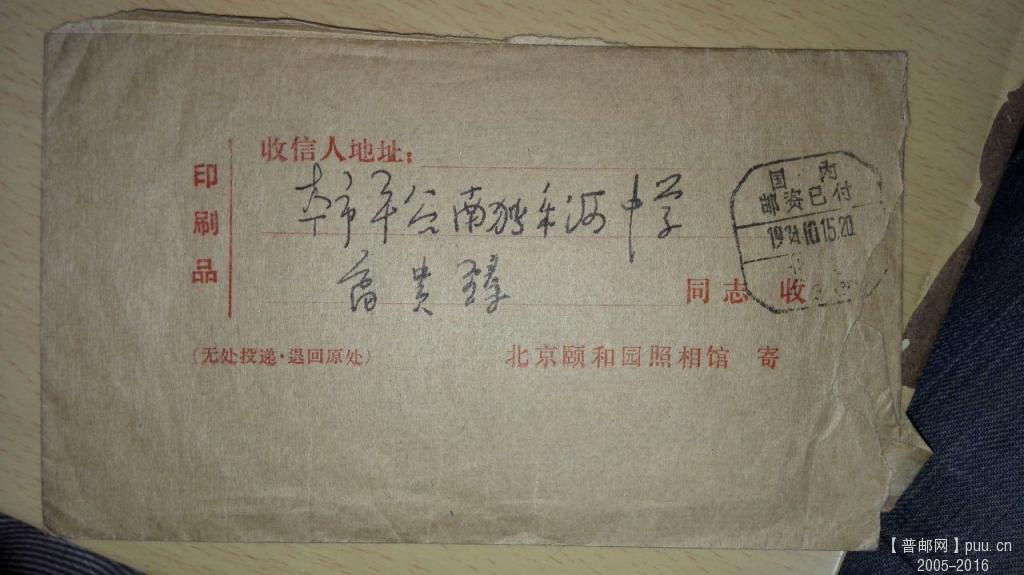 印刷品
收信人地址：
本市平谷南独乐河中学
贵臻
同志 收
(无处投递·退回原处)
北京颐和园照相馆 寄
国内
邮资已付
【普邮网】puu.cn
2005-2016